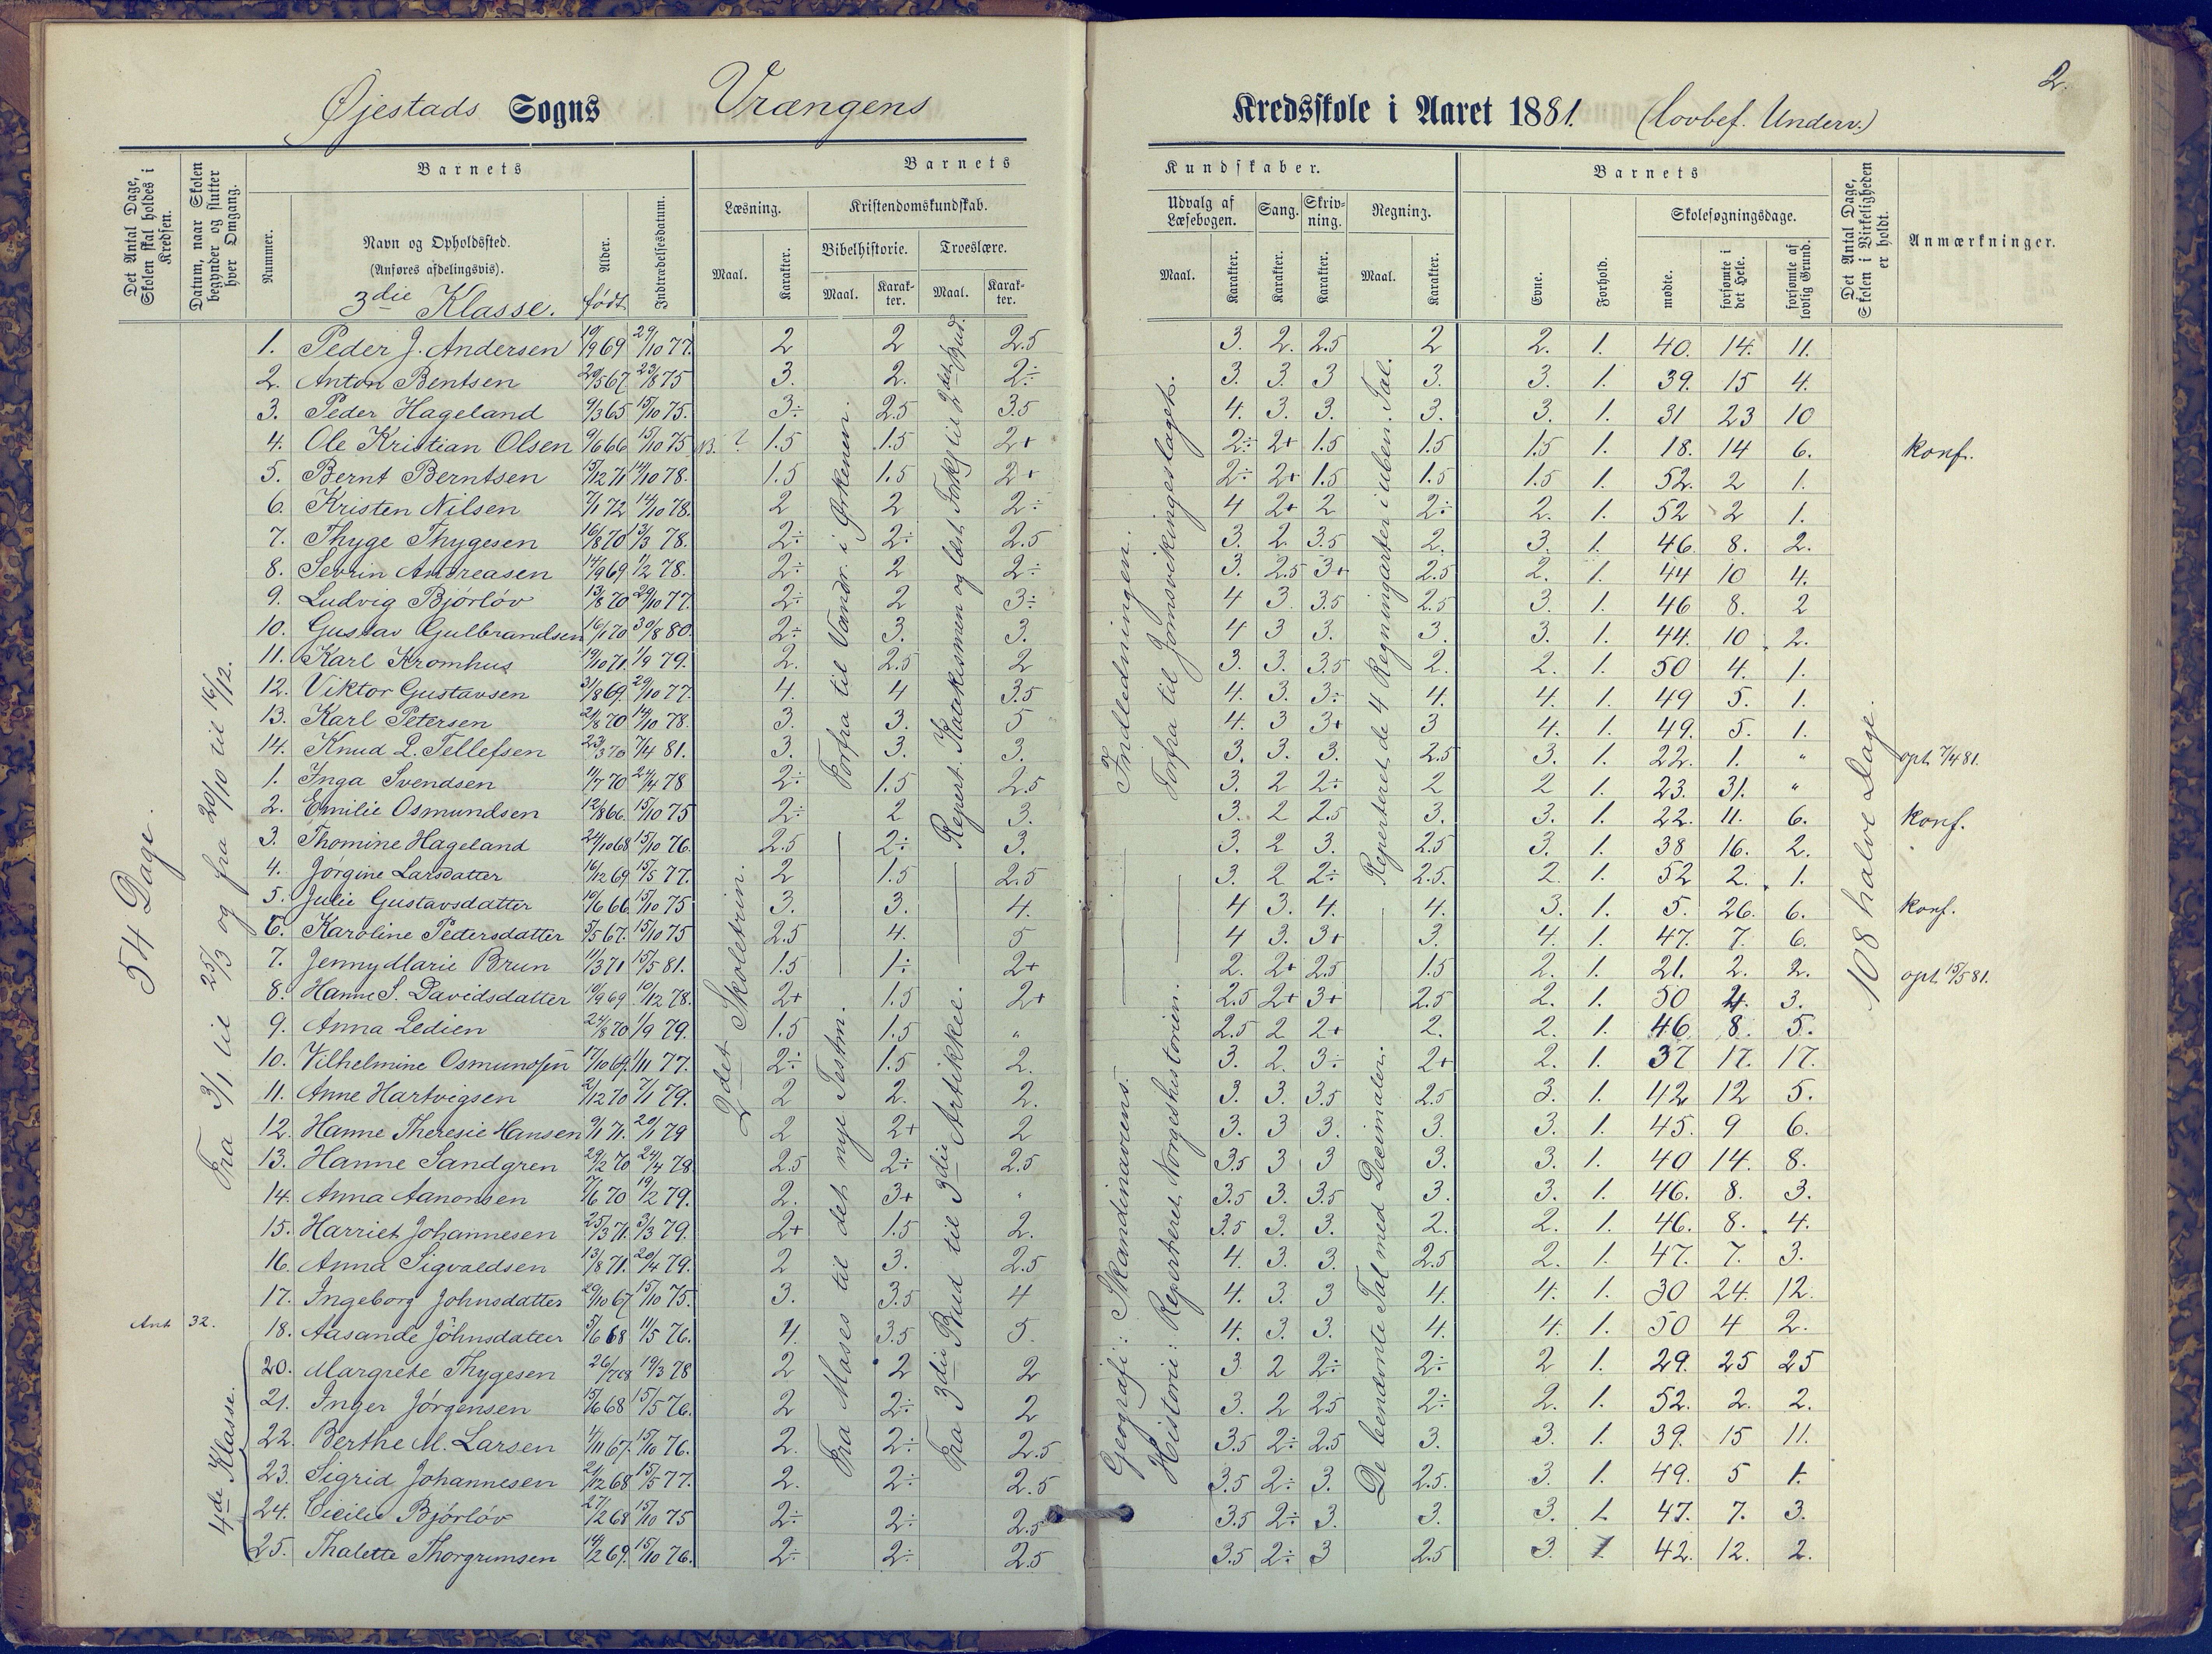 2.
Øjestads Sogns Vrængens Kredsskole i Aaret 1881. (lovbef. Underv.)
Det Antal Dage, Skolen skal holdes i Kredsen.
Datum, naar Skolen begynder og slutter hver Omgang.
Barnets
Nummer.
Navn og Opholdssted.
(Anføres afdelingsvis).
3die Klasse.
Alder.
født
Indtrædelsesdatum.
Barnets Kundskaber.
Læsning.
Maal.
Karakter.
Kristendomskundskab.
Bibelhistorie.
Maal.
Karakter.
Troeslære.
Maal.
Karakter.
Udvalg af Læsebogen.
Maal.
Karakter.
Sang.
Karakter.
Skrivning.
Karakter.
Regning.
Maal.
Karakter.
Barnets
Evne.
Forhold.
Skolesøgningsdage.
mødte.
forsømte i det Hele.
forsømte af lovlig Grund.
Det Antal Dage, Skolen i Virkeligheden er holdt.
Anmærkninger.
54 Dage.
Fra 3/1 til 25/3 og fra 20/10 til 16/12.
2det Skoletrin.
Forfra til Vandr. i Ørkenen.
Fra Moses til det nye Testm.
Repert. Katekismen og læst Forkl. til 2det Bud.
Fra 3die Bud til 3die Artikkel.
Indledningen.
Forfra til Jomsvikingeslaget.
Geografi: Skandinaviens.
Historie: Reperteret Norgeshistorien.
Reperteret de 4 Regningarter i uben. Tal.
De benævnte Tal med Decimaler.
108 halve Dage.
1. Peder J. Andersen 19/9 69 29/10 77. 2 2 2.5 3. 2. 2.5 2 2. 1. 40. 14. 11.
2. Anton Bentsen 29/5 67 23/8 75 3. 2. 2÷ 3. 3. 3 3. 3. 1. 39. 15 4.
3. Peder Hageland 9/3 65 15/10 75. 3÷ 2.5 3.5 4. 3. 3. 3. 3. 1. 31 23 10
4. Ole Kristian Olsen 9/6 66 15/10 75 1.5 1.5 2+ 2÷ 2+ 1.5 1.5 1.5 1. 18. 14 6. konf.
5. Bernt Berntsen 15/12 71 14/10 78. 1.5 1.5 2+ 2÷ 2+ 1.5 1.5 1.5 1. 52. 2 1.
6. Kristen Nilsen 7/1 72 14/10 78. 2 2 2÷ 4 2+ 2 2÷ 2. 1. 52 2 1.
7. Thyge Thygesen 16/8 70 13/3 78. 2÷ 2÷ 2.5 3. 2 3.5 2. 3. 1. 46. 8. 2.
8. Sevrin Andreasen 14/9 69 11/2 78. 2÷ 2 2÷ 3. 2.5 3+ 2.5 2. 1. 44 10 4.
9. Ludvig Bjórlóv 13/8 70 29/10 77. 2÷ 2 3÷ 4 3. 3.5 2.5 3. 1. 46 8. 2
10. Gustav Gulbrandsen 16/1 70 30/8 80. 2÷ 3. 3. 4 3 3. 3. 3. 1. 44. 10 2.
11. Karl Kromhus 19/10 71. 1/9 79. 2. 2.5 2 3. 3. 3.5 2. 2. 1. 50 4. 1.
12. Viktor Gustavsen 31/8 69. 29/10 77. 4. 4 3.5 4. 3. 3÷ 4. 4. 1. 49 5. 1.
13. Karl Petersen 21/8 70 14/10 78. 3. 3. 5 4. 3 3+ 3 4. 1. 49. 5. 1.
14. Knud L. Tellefsen 23/3 70 7/4 81. 3. 3. 3. 3. 3. 3. 2.5 3. 1. 22. 1. " opt. 7/4 81.
1. Inga Svendsen 11/7 70 24/4 78 2÷ 1.5 2.5 3. 2 2÷ 2 2 1. 23. 31. "
2. Emilie Osmundsen 12/8 66. 15/10 75 2÷ 2 3. 3. 2 2.5 3. 3. 1. 22. 11. 6. konf.
3. Thomine Hageland 24/10 68 15/10 76. 2.5 2÷ 3. 3. 2 3. 2.5 3. 1. 38 16. 2.
4. Jórgine Larsdatter 16/12 69 15/5 77. 2 1.5 2.5 3. 2 2÷ 2.5. 2. 1. 52 2. 1.
5. Julie Gustavsdatter 19/6 66 15/10 75 3. 3. 4. 4 3. 4. 4. 3. 1. 5. 26. 6. konf.
6. Karoline Pedersdatter 5/5 67. 15/10 75 2.5 4. 5 4 3. 3+ 3. 4. 1. 47. 7. 6.
7. Jenny Marie Brun 11/3 71 15/5 81. 1.5 1÷ 2+ 2. 2+ 2.5 1.5 2. 1. 21. 2. 2. opt. 15/5 81.
8. Hanne S. Davidsdatter 19/9 69 10/12 78. 2+ 1.5 2+ 2.5 2+ 3+ 2.5 2. 1. 50 4. 3.
9. Anna Ledien 24/8 70 1/9 79. 1.5 1.5 " 2.5 2 2+ 2. 2. 1. 46. 8. 5.
10. Vilhelmine Osmundsen 17/10 69. 1/11 77. 2÷ 1.5 2. 3. 2. 3÷ 2+ 2. 1. 37 17. 17.
11. Anne Hartvigsen 2/12 70 7/1 79. 2 2. 2. 3. 3. 3.5 2.5 3. 1. 42 12 5.
12. Hanne Theresie Hansen 9/1 71. 20/1 79 2 2+ 2 3. 3 3. 3. 3. 1. 45. 9 6.
13. Hanne Sandgren 29/2 70 24/4 78 2.5 2÷ 2.5 3.5 3 3 3. 3. 1. 40 14. 8.
14. Anna Aanonsen 7/6 70 19/2 79. 2. 3+ " 3.5 3. 3.5 3. 3. 1. 46. 8. 3.
15. Harriet Johannesen 25/3 71. 3/3 79. 2+ 1.5 2. 3.5 3. 3. 2. 2. 1. 46. 8. 4.
16. Anna Sigvaldsen 13/8 71. 20/4 79. 2 3. 2.5 4. 3. 3. 2.5 2. 1. 47. 7. 3.
17. Ingeborg Johnsdatter 29/10 67 15/10 75. 3. 3.5 4 4. 3. 3 4. 4. 1. 30 24. 12.
Ant 32.
18. Aasande Johnsdatter 5/6 68 11/5 76. 4. 3.5 5. 4. 3. 3. 4. 4. 1. 50 4 2.
4de Klasse.
20. Margrete Thygesen 19/3 78 2 2 2 3 2 2÷ 2÷ 2 1. 29. 25 25
21. Inger Jórgensen 15/6 68 15/5 76. 2 2÷ 2 3. 2 2.5 2÷ 2. 1. 52. 2. 2.
22. Berthe M. Larsen 4/11 67. 15/10 76. 2. 2÷ 2.5 3.5 2÷ 2.5 3. 3. 1. 39. 15 11.
23. Sigrid Johannesen 21/12 68 15/5 77. 2. 2÷ 2.5 3.5 2÷ 3. 2.5. 3. 1. 49. 5 1.
24. Cicilie Bjórlóv 27/2 68 15/10 75 2÷ 2÷ 2.5 3.5 2÷ 3. 3. 3. 1. 47. 7. 3.
25. Thalette Thorgrimsen 14/2 69. 15/10 76. 2÷ 2÷ 2.5 3.5 2÷ 3 2.5 3. 1 42. 12. 2.